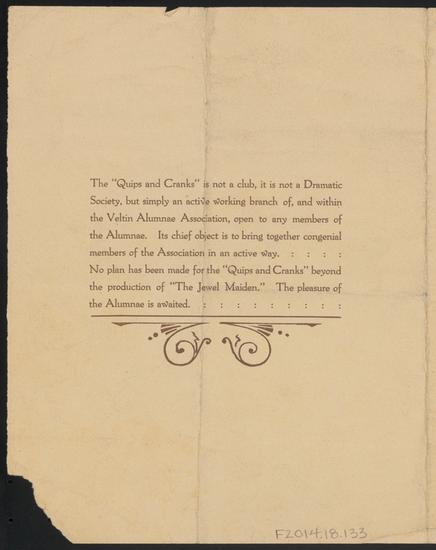 The "Quips and Cranks" is not a club, it is not a Dramatic
Society, but simply an active working branch of, and within
the Veltin Alumnae Association, open to any members of
the Alumnae. Its chief object is to bring together congenial
members of the Association in an active way. : : : :
No plan has been made for the "Quips and Cranks" beyond
the production of "The Jewel Maiden." The pleasure of
the Alumnae is awaited. : : : : : : : : :
F2014.18.133